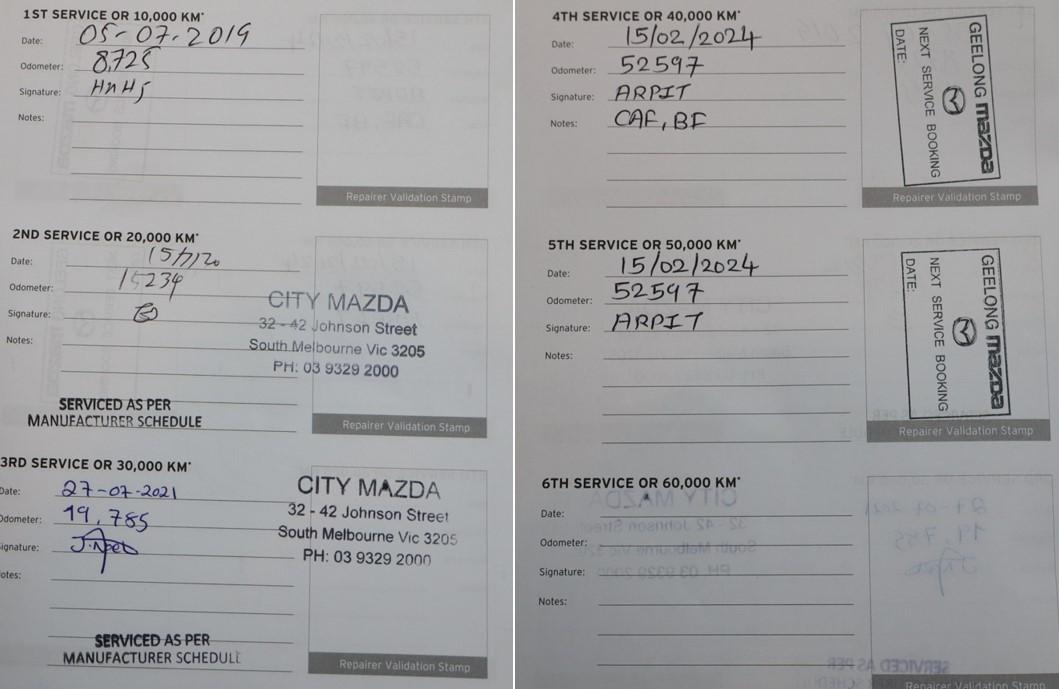 1ST SERVICE OR 10,000 KM*
Date: 05-07-2019
Odometer: 8,725
Signature: HnHj
Notes:
Repairer Validation Stamp
2ND SERVICE OR 20,000 KM*
Date: 15/7/20
Odometer: 15234
Signature:
Notes:
CITY MAZDA
32 - 42 Johnson Street
South Melbourne Vic 3205
PH: 03 9329 2000
SERVICED AS PER
MANUFACTURER SCHEDULE
Repairer Validation Stamp
3RD SERVICE OR 30,000 KM*
Date: 27-07-2021
Odometer: 19,785
Signature:
Notes:
CITY MAZDA
32 - 42 Johnson Street
South Melbourne Vic 3205
PH: 03 9329 2000
SERVICED AS PER
MANUFACTURER SCHEDULE
Repairer Validation Stamp
4TH SERVICE OR 40,000 KM*
Date: 15/02/2024
Odometer: 52597
Signature: ARPIT
Notes: CAF, BF
GEELONG mazda
NEXT SERVICE BOOKING
DATE:
Repairer Validation Stamp
5TH SERVICE OR 50,000 KM*
Date: 15/02/2024
Odometer: 52597
Signature: ARPIT
Notes:
GEELONG mazda
NEXT SERVICE BOOKING
DATE:
Repairer Validation Stamp
6TH SERVICE OR 60,000 KM*
Date:
Odometer:
Signature:
Notes:
Repairer Validation Stamp